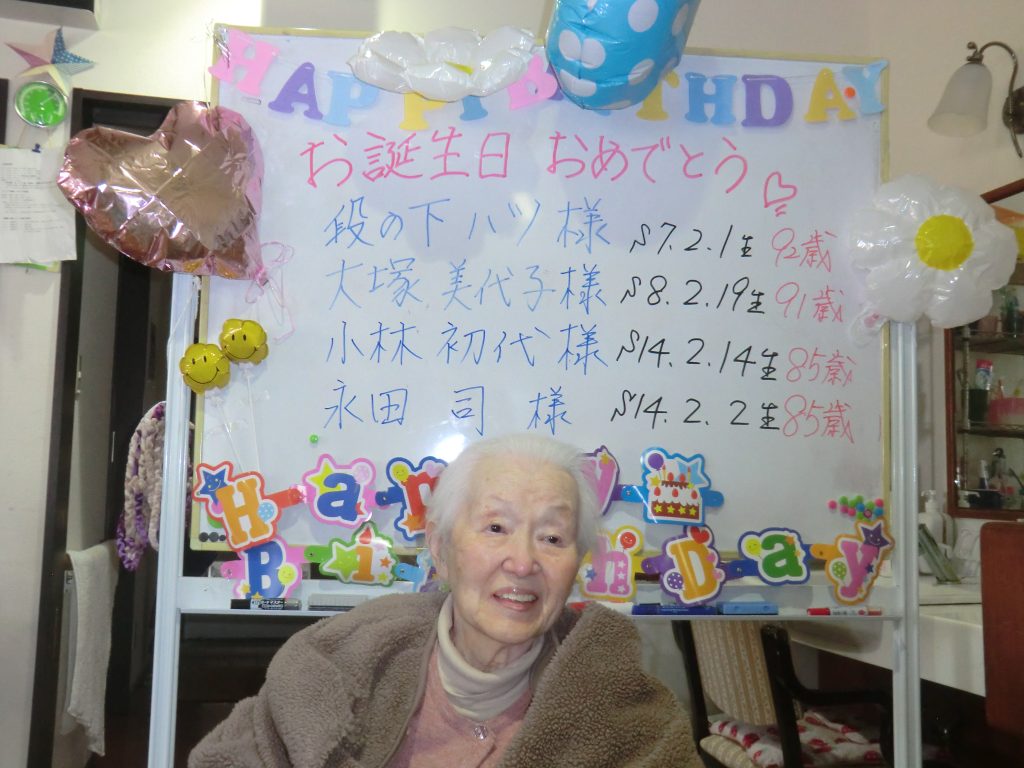 HAPPY BIRTHDAY
お誕生日 おめでとう
段の下 ハツ 様 S7.2.1生 92歳
大塚 美代子様 S8.2.19生 91歳
小林 初代 様 S14.2.14生 85歳
永田 司 様 S14.2.2生 85歳
Ha y
Bi hDay